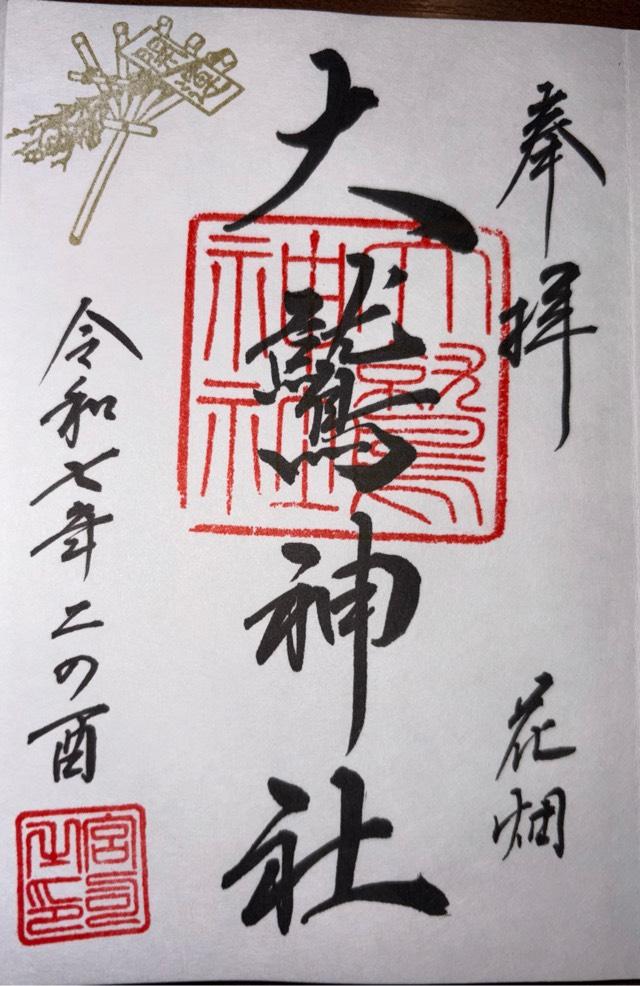 奉拝
花畑
大鷲神社
大鷲神社
令和七年二の酉
宮司之印